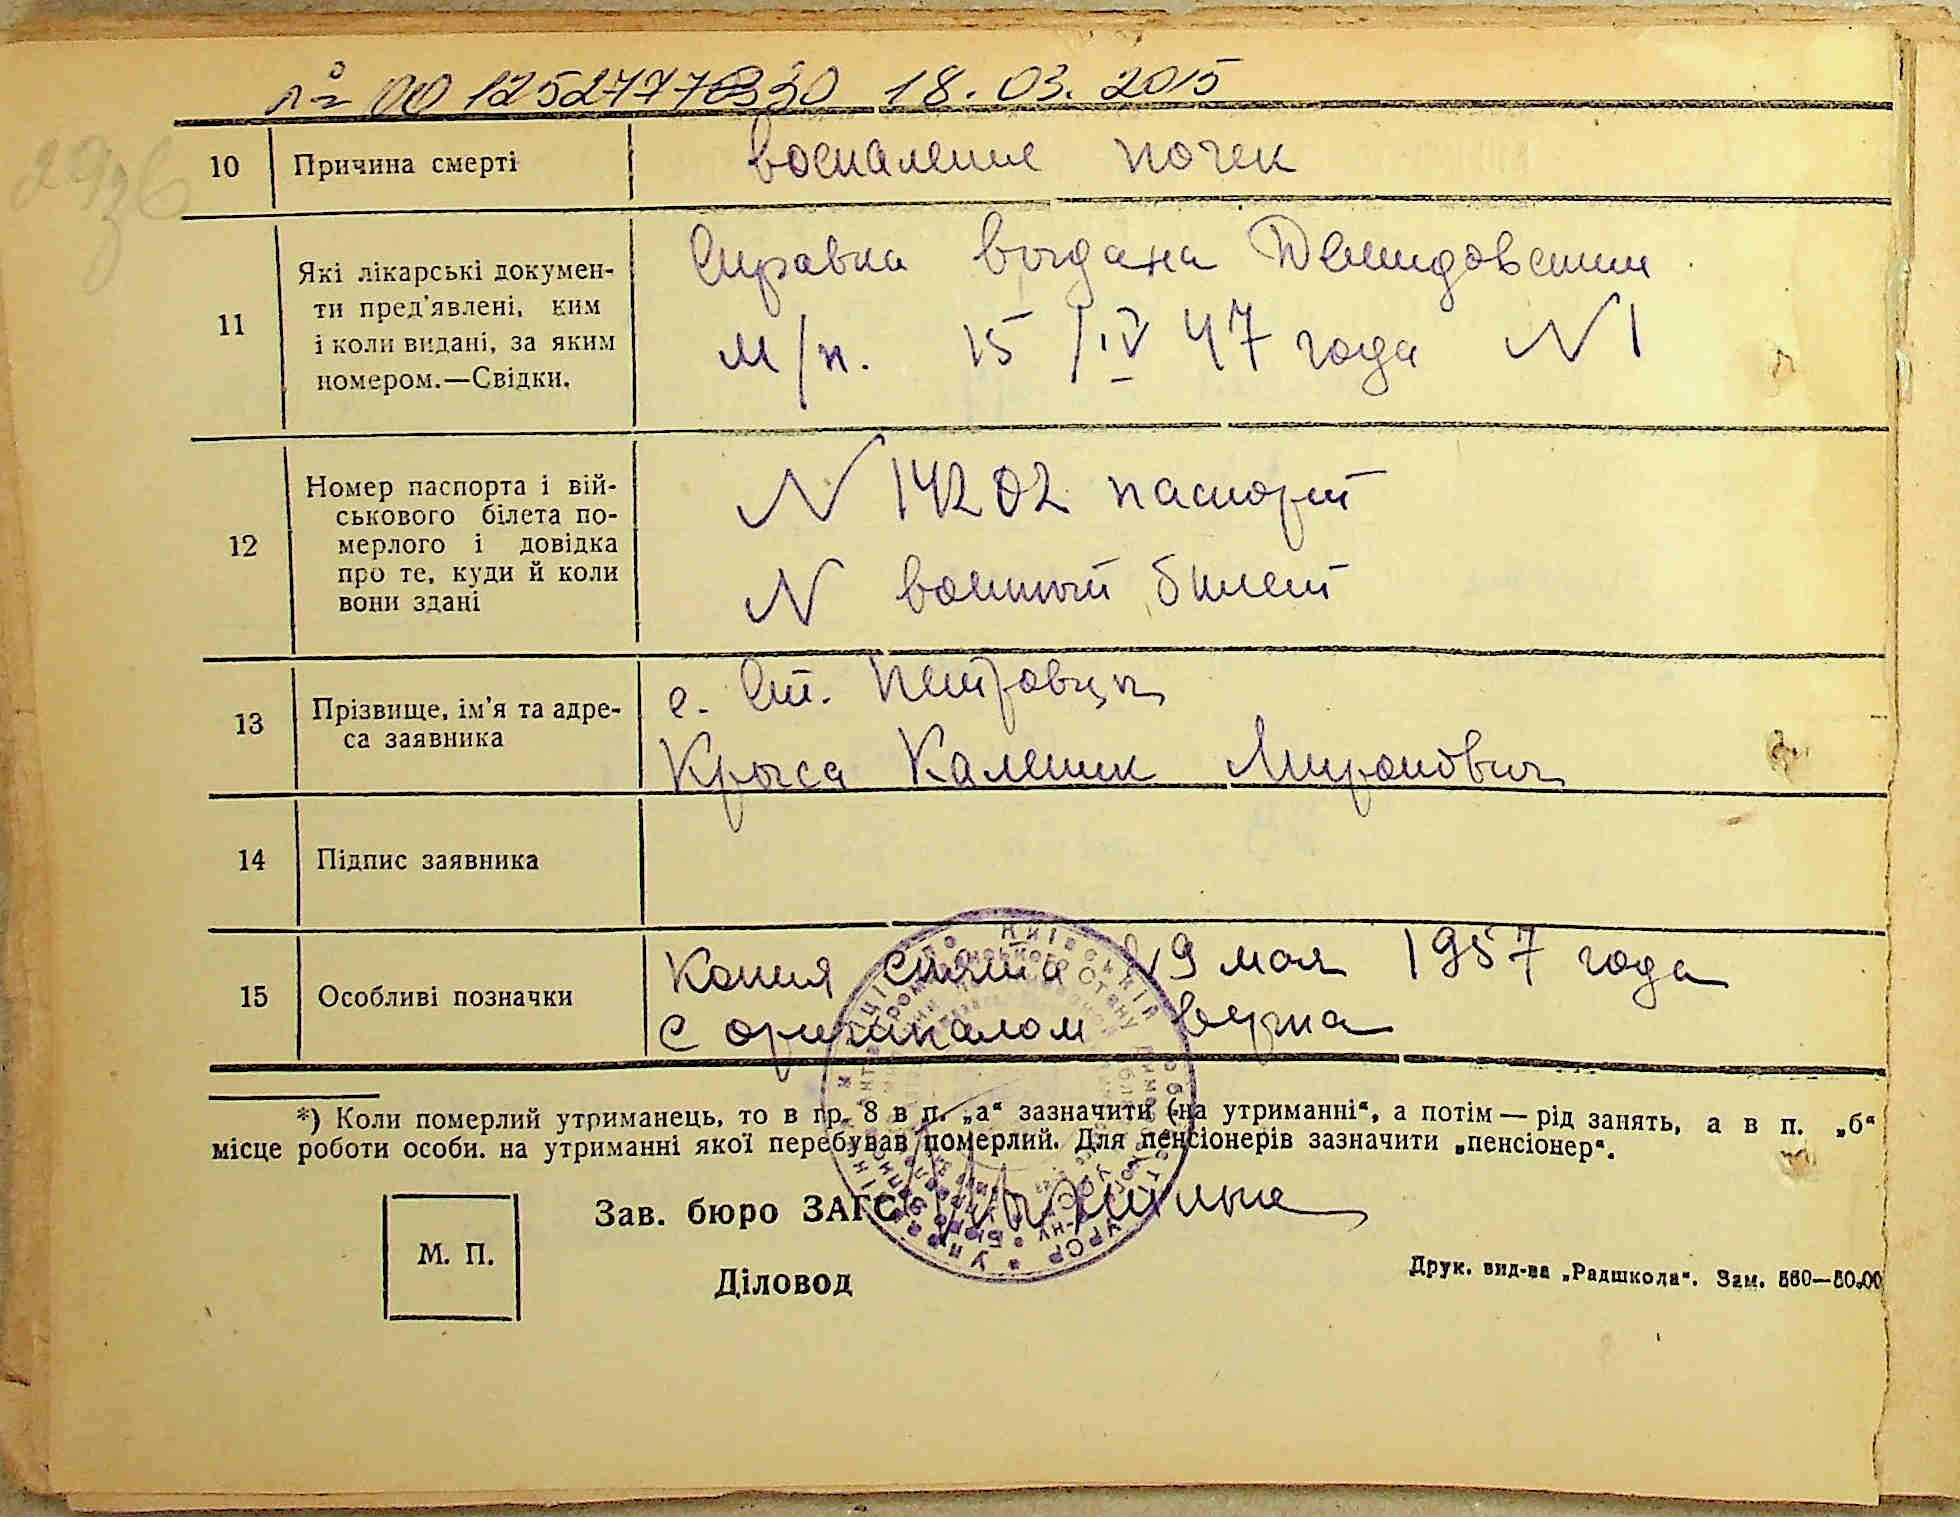 № 00125277330 18.03.2015
10 Причина смерті воспаление почек
11 Які лікарські докумен-
ти пред'явлені, ким
і коли видані, за яким
номером.—Свідки.
Справка выдана Демидовским
м/п. 15/IV 47 года N 1
12 Номер паспорта і вій-
ськового білета по-
мерлого і довідка
про те, куди й коли
вони здані
N 14202 паспорт
N военный билет
13 Прізвище, ім'я та адре-
са заявника
с. Ст. Петровцы
Крыса Каленик Миронович
14 Підпис заявника
15 Особливі позначки
Копия снята 19 мая 1957 года
с оригиналом верна
*) Коли померлий утриманець, то в гр. 8 в п. „а“ зазначити (на утриманні“, а потім — рід занять, а в п. „б“
місце роботи особи. на утриманні якої перебував померлий. Для пенсіонерів зазначити „пенсіонер“.
Зав. бюро ЗАГС
М. П.
Діловод
Друк. вид-ва „Радшкола“. Зам.